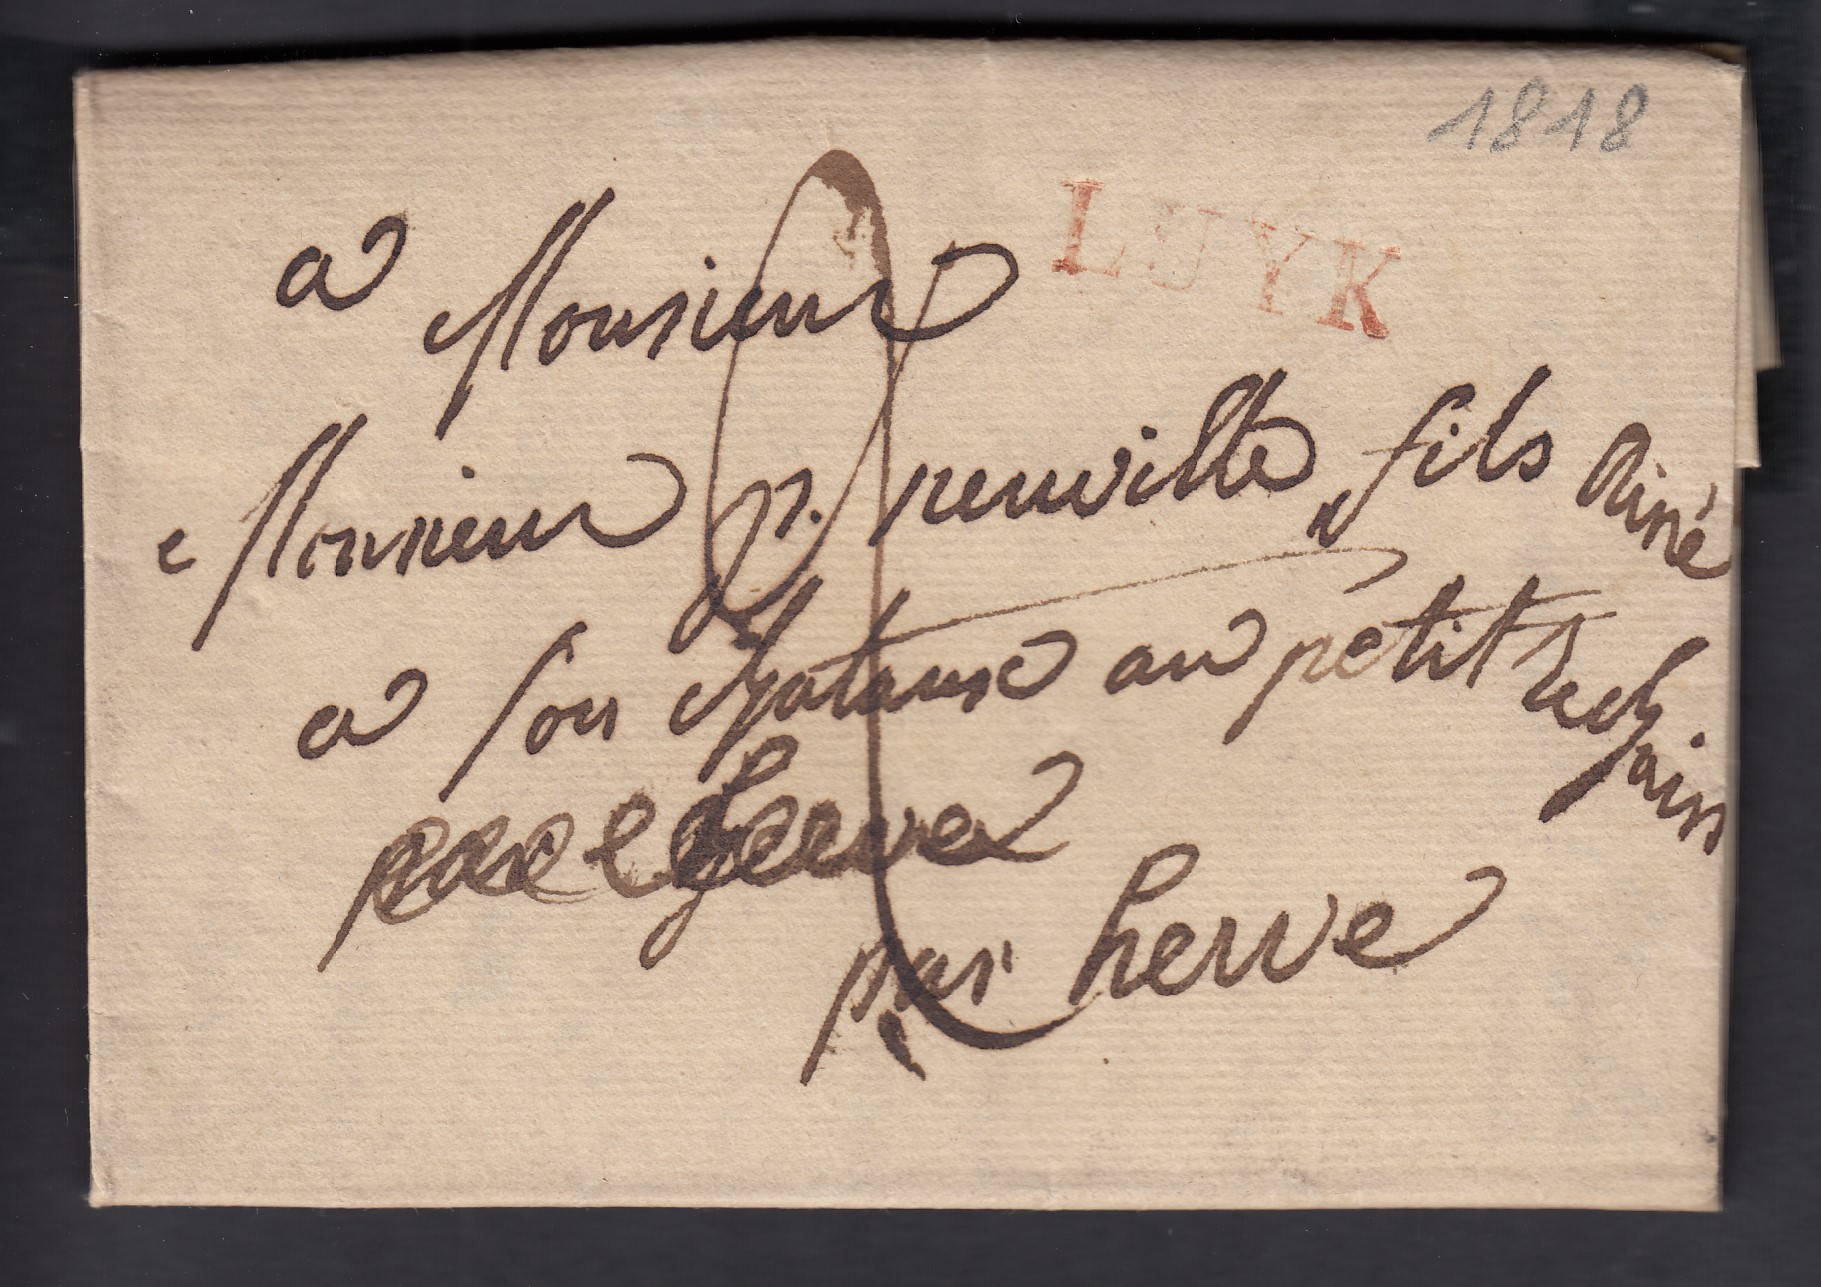 1818
LUYK
a Monsieur
Monsieur p. neuville fils Ainé
a son chataux au pétit Rechain
herve
par herve